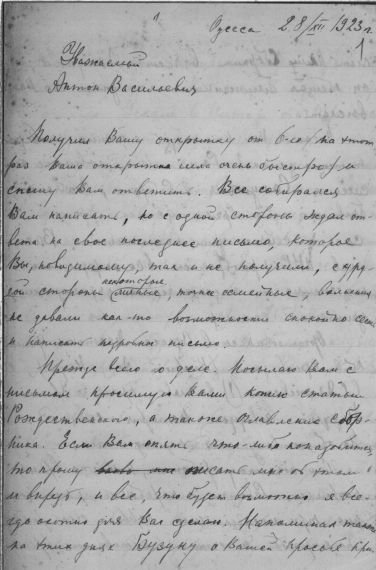 Одесса 28/XII 1923 г.
1
Уважаемый
Антон Васильевич
Получил Вашу открытку от 6-го (на этот
раз Ваша открытка шла очень быстро) и
спешу Вам ответить. Все собирался
Вам написать, но с одной стороны ждал от-
вета на свое последнее письмо, которое
Вы, повидимому, так и не получили, с дру-
гой стороны некоторые личные, точнее семейные, волнения
не давали как-то возможности спокойно сесть
и написать подробное письмо.
Прежде всего о деле. Посылаю Вам с
письмом просимую Вами копию статьи
Рождественского, а также оглавление сбор-
ника. Если Вам опять что-либо понадобится,
то прошу писать мне об этом
и впредь, и все, что будет возможно я все-
гда охотно для Вас сделаю. Напоминал также
на этих днях Бузуку о Вашей просьбе при-